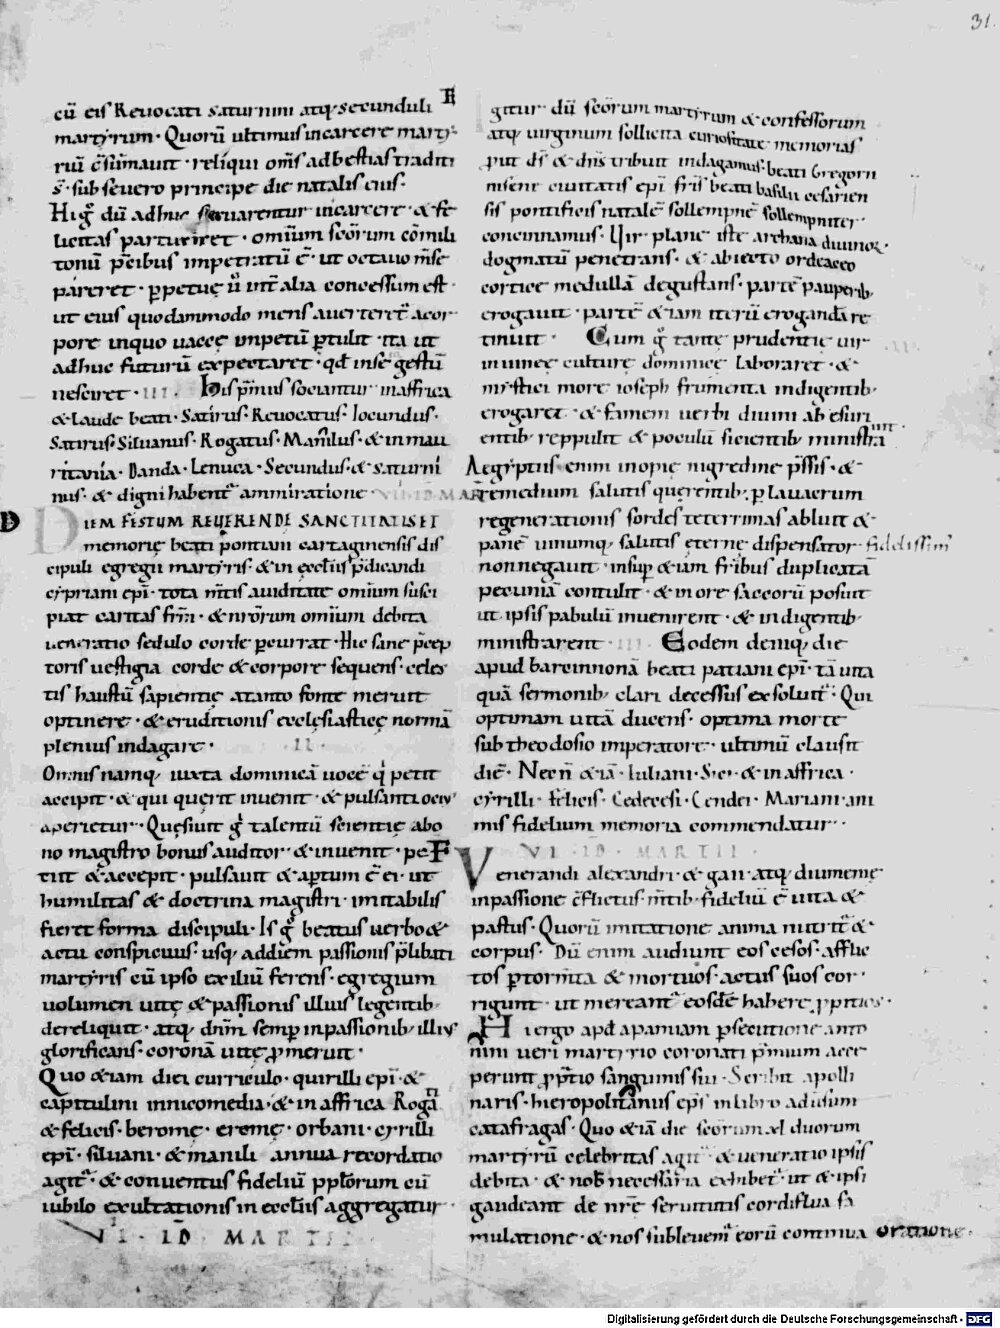 31.
cū eis Reuocati saturnini atq; secunduli
martyrum · Quorū ultimus in carcere marty-
riū c̄sūmauit · reliqui om̄s ad bestias traditi
s̄ · sub seuero principe die natalis eius ·
Hi gͦ dū adhuc seruarentur in carcere · & fe
licitas parturiret · omīum sc̄orum cōmili
tonū p̄cibus impetratū ē · ut octauo m̄se
pareret · ꝑpetuę ū int̄ alia concessum est ·
ut eius quodammodo mens auerteret᷑ a cor-
pore in quo uaccę impetū ꝑtulit · ita ut
adhuc futurū expectaret · qd̄ in se gestū
nesciret · III · His p̄mus sociantur in affrica
& laude beati · Satirus · Reuocatus · Iocundus ·
Satirus · Siluanus · Rogatus · Mamilus · & in mau
ritania · Banda · Lenuca · Secundus · & saturni
nus · & digni habent᷑ ammiratione · VIII ID MAR
DIEM FESTUM REUERENDE SANCTITATIS ET
memorię beati pontiani cartaginensis dis
cipuli egregii martyris · & in eccl̄iis p̄dicandi
cypriani ep̄i · tota m̄tis auiditate omīum susci
piat caritas fr̄m̄ · & nr̄orum omīum debita
ueneratio sedulo corde ꝑcurrat · Hic sane p̄cep
toris uestigia corde & corpore sequens · celes
tis haustū sapientię a tanto fonte meruit
optinere · & eruditionis ecclesiasticę normā
plenius indagare · II ·
Omnis namq; iuxta dominicā uocē q̇ petit
accipit · & qui querit inuenit · & pulsanti ociꝰ
aperietur · Quęsiuit gͦ talentū scientię a bo
no magistro bonus auditor · & inuenit · pe
tiit & accepit · pulsauit & aꝑtum ē ei · ut
humilitas & doctrina magistri · imitabilis
fieret forma discipuli · Is gͦ beatus uerbo &
actu conspicuus · usq; ad diem passionis p̄libati
martyris cū ipso exilium ferens · egregium
uolumen uitę & passionis illius legentib;
dereliquit · atq; dn̄m semꝑ in passionib; illiꝰ
glorificans · coronā uitę ꝓmeruit ·
Quo &iam diei curriculo · quirilli ep̄i · &
capitulini in nicomedia · & in affrica Rogati
& felicis · beromę · eremę · orbani · cyrilli
ep̄i · siluani · & manili annua recordatio
agit᷑ · & conuentus fidelium ppl̄orum cū
iubilo exultationis in eccl̄iis aggregatur ·
VI · ID · MARTII
Igitur dū sc̄orum martyrum & confessorum
atq; uirginum sollicita curiositate memorias
ꝓut ds̄ & dn̄s tribuit indagamus · beati Gregorii
niseni ciuitatis ep̄i fr̄is beati basilii cesarien
sis pontificis natalē sollempnē sollempniter
concinnamus · Uir plane iste archana diuinoꝝ
dogmatū penetrans · & abiecto ordeaceo
cortice medullā degustans · partē pauperib;
erogauit · partē &iam iterū erogandā re
tinuit · Cum gͦ tantę prudentię uir
in uineę culturę dominicę laboraret · &
mistici more ioseph frumenta indigentib;
erogaret · & famem uerbi diuini ab esuri
entib; reppulit & poculū sicientib; ministrauit ·
Aegyptus enim inopię nigredine p̄ssis · &
remedium salutis querentib; ꝑ lauacrum
regenerationis sordes teterrimas abluit &
panē uinumq; salutis eternę dispensator fidelissimꝰ
non negauit · insuꝑ &iam fr̄ibus duplicatā
pecuniā contulit · & in ore saccorū posuit
ut ipsis pabulū inuenirent · & indigentib;
ministrarent · III · Eodem deniq; die
apud barcinnonā beati patiani ep̄i · tā uita
quā sermonib; clari decessus exsoluit᷑ · Qui
optimam uitā ducens · optima morte
sub theodosio imperatore · ultimū clausit
diē · Necn̄ &iā · Iuliani · & in affrica ·
cyrilli · felicis · Cedecesi · Cendei · Mariani ani
mis fidelium memoria commendatur ·
VI · ID · MARTII ·
Venerandi alexandri · & gaii · atq; diumeme
in passione c̄flictus · m̄tib; fidelium ē uita &
pastus · Quorū imitatione anima nutrit᷑ &
corpus · Dū enim audiunt eos cesos · afflic
tos ꝑ torm̄ta & mortuos · actus suos cor-
rigunt · ut mereant᷑ eosdē habere ꝓpitios ·
Hi ergo apd̄ apamiam ꝑsecutione anto
nini ueri martyrio coronati p̄mium acce
perunt ꝓp̄tio sanguinis sui · Scribit apolli
naris · hieropolitanus ep̄s in libro aduersum
catafragas · Quo &iā die sc̄orum xl duorum
martyrū celebritas agit᷑ · & ueneratio ipsis
debita · & nob̄ necessaria exhibet᷑ · ut & ipsi
gaudeant de nr̄ē seruitutis cordiflua fa
mulatione · & nos subleuem᷑ eorū continua oratione ·
Digitalisierung gefördert durch die Deutsche Forschungsgemeinschaft - DFG